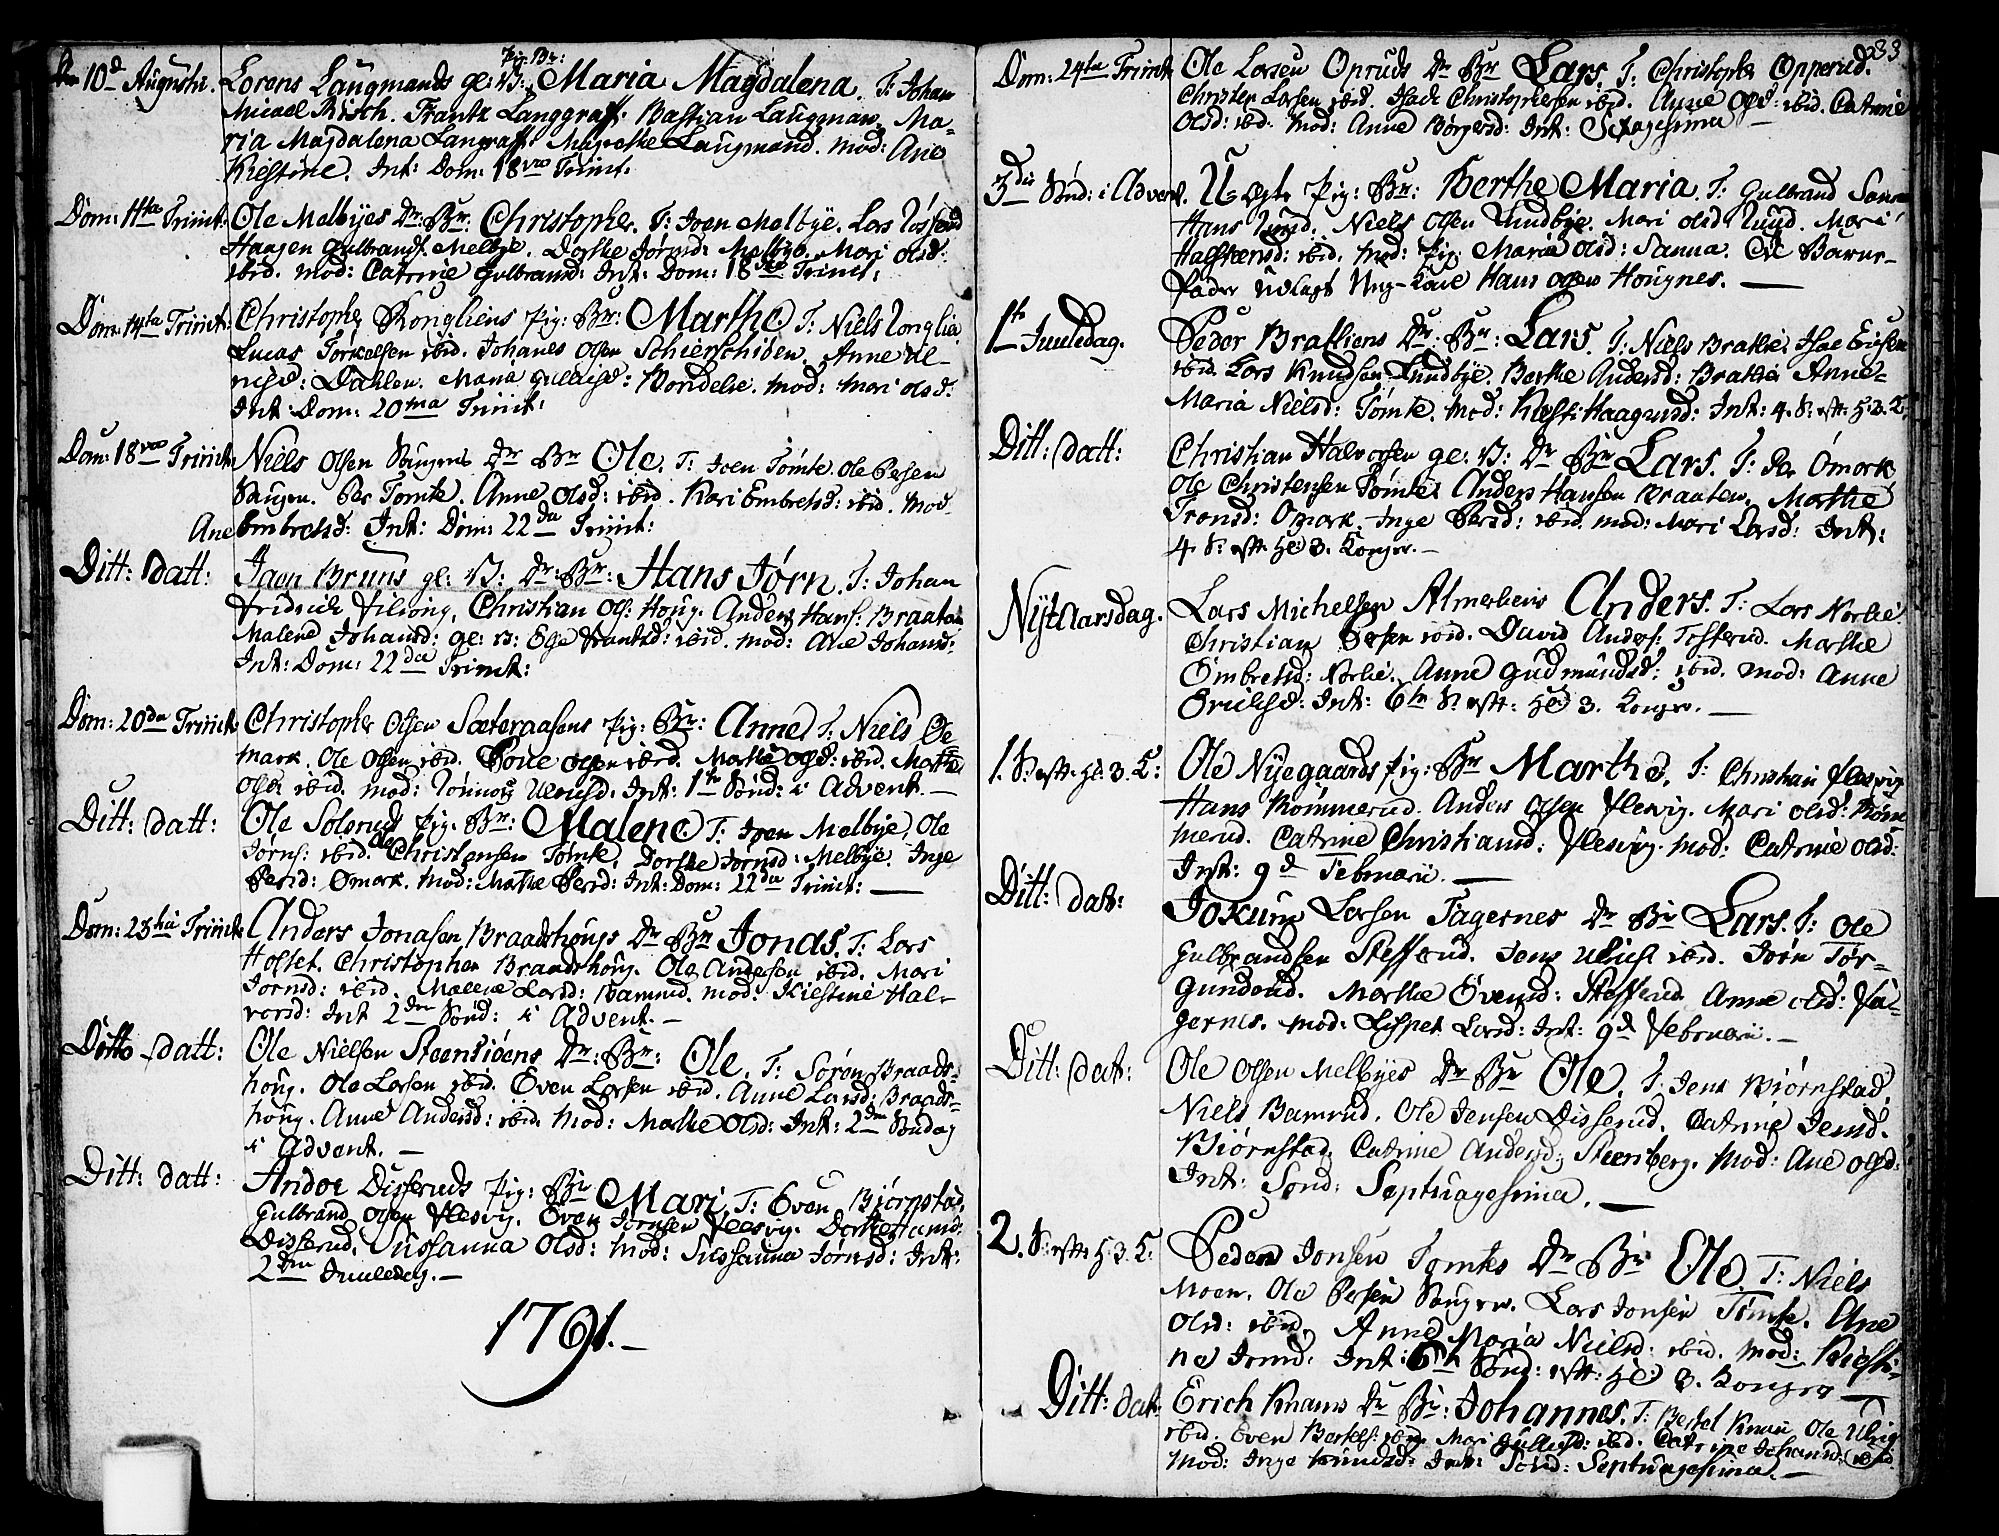 10d Augusti. Lorens Laugmands ge: V: Pig: Br: Maria Magdalena. T: Johan
Micael Risch. Frantz Langgraff. Bastian Laugman. Ma-
ria Magdalena Langraff Magrethe Laugmand. Mod: Ane
Kiestine. Int: Dom: 18vo Trinit:
Dom: 11ta Trinit: Ole Melbyes Dr: Br: Christopher. T: Joen Melbye. Lars
Haagen Gulbrands. Melbye. Dorthe Jørnsd: Melbye. Mari Olsd:
ibid. Mod: Catrine Gulbransd: Int: Dom: 18vo Trinit:
Dom: 14ta Trinit: Christopher Rongliens Pig: Br: Marthe T: Niels Ronglia
Lucas Torkelsen ibid. Johanes Olsen Schierschiden. Anne Ul-
richsd: Dahlen. Maria Gullichsd: Bondelie. Mod: Mari Olsd:
Int: Dom: 20ma Trinit:
Dom: 18vo Trinit: Niels Olsen Haugens Dr Br Ole. T: Joen Tømte. Ole Persen
Haugen. Per Tomte. Anne Olsd: ibid. Kari Embretsd: ibid. Mod
Ane Embretsd: Int: Dom: 22da Trinit:
Ditt: datt: Jaen Bruns ge: V: Dr: Br: Hans Jørn. T: Johan
Fridrich Christian Ols: Houg. Anders Hans: Braaten
Malene Johansd: ge: V: Else Frantsd: ibid. Mod: Ane Johansd:
Int: Dom: 22da Trinit:
Dom: 20da Trinit: Christopher Olsen Sæteraasens Pig: Br: Anne T: Niels Oe
mark. Ole Olsen ibid. Povel Olsen ibid. Marthe Olsd: ibid. Marthe
Olsd ibid. Mod: Rønnoug Ulrichsd: Int: 1te Sønd: i Advent.
Ditt: datt: Ole Soleruds Pig: Br: Malene T: Joen Melbye, Ole
Jørns: ibid. Ole Christensen Tømte, Dorthe Jørnsd: Melbye. Inge
Persd: Ømark. Mod: Mathe Persd: Int: Dom: 22da Trinit:
Dom: 23tia Trinit: Anders Jonasen Braadshougs Dr Br Jonas. T: Lars
Holtet. Christopher Braadshoug. Ole Andersen ibid. Mari
Jørnsd: ibid. Malene Larsd: Bamrud. Mod: Kiestine Hal-
vorsd: Int 2den Sønd: i Advent.
Ditto datt: Ole Nielsen Steensiøens Dr: Br: Ole. T: Søren Braads-
houg. Ole Larsen ibid. Even Larsen ibid. Anne Larsd: Braads-
houg. Anne Andersd: ibid. Mod: Marthe Olsd: Int: 2den Søndag
i Advent.
Ditt: datt: Andor Disseruds Pig: Br Mari. T: Even Biørnstad,
Gulbrand Olsen Flesvig. Even Jørnsen Flesvig. Dorthe
Disserud, Sussanna Olsd: Mod: Sussanna Jørnsd: Int:
2den Juuledag.
1791.
233
Dom: 24ta Trinit: Ole Larsen Opruds Dr Br Lars. T: Christopher Opperud.
Christen Larsen ibid. Isach Christophersen ibid. Anne Olsd: ibid. Catrine
Olsd: ibid. Mod: Anne Børgersd: Int: Sexagesima
3die Sønd: i Advent. Uægte Pig: Br: Berthe Maria. T: Gulbrand Sanna
Hans Niels Olsen Lundbye. Mari Olsd Mari
Halstensd: ibid. Mod: Pig: Marie Olsd: Sanna. Til Barne-
fader udlagt Ung-Karl Hans Olsen Hougnes.
1te Juuledag. Peder Bratliens Dr: Br: Lars. T: Niels Bratlie. Isac Ericsen
ibid. Lars Knudsen Lundbye. Berthe Andersd: Bratlie Anne-
Maria Nielsd: Tømte. Mod: Kiesti Haagensd: Int: 4. S: eftt: H: 3. K:
Ditt: datt: Christian Halvorsen ge: V: Dr Br Lars. T: Per Ømark
Ole Christensen Tømte. Anders Hansen Braaten. Marthe
Tronsd: Omark. Inge Persd: ibid. Mod: Mari Larsd: Int:
4 S: eftt: He: 3. Konger.
Nytaarsdag. Lars Michelsen Almerliens Anders. T: Lars Norlie
Christian Persen ibid. David Anders: Tosterud. Marthe
Ømbretsd: Norlie. Anne Gudmundsd: ibid. Mod: Anne
Int: 6te S: eftt: He: 3. Konger.
1. S: eftt: He: 3. K: Ole Nyegaards Pig: Br Marthe. T: Christian Flesvig
Hans Rømmerud. Anders Olsen Flesvig. Mari Olsd: Røm
merud. Catrine Christiansd: Flesvig. Mod: Catrine Olsd:
Int: 9d Februarii.
Ditt: dat: Jokum Larsen Fagernes Dr Br Lars. T: Ole
Gulbrandsen Stefferud. Jens Ulrichs ibid. Jørn Tør-
gunderud. Marthe Evensd: Stefferud Anne Olsd: Fa-
gernes. Mod: Lispet Larsd: Int: 9d Februarii.
Ditt: dat: Ole Olsen Melbyes Dr Br Ole. T: Jens Biørnstad,
Niels Bamrud. Ole Jensen Disserud. Catrine Jensd.
Biørnstad. Catrine Andersd: Steensberg. Mod: Ane Olsd:
Int: Sønd: Septuagesima.
2. S: eftt: H: 3. K: Peder Jonsen Tomtes Dr Br Ole. T: Niels
Moen. Ole Persen Haugen. Lars Jonsen Tømte. Ane
Olsd: ibid. Anne Maria Nielsd: ibid. Mod: Kiesti-
ne Int: 6te Sønd: eftt: He: 3. Konger
Ditt: dat: Erich Knaus Dr Br: Johannes. T: Bertel Knau Ole Ulrig
ibid. Even Bertels: ibid. Mari Gullichsd: ibid. Catrine Johansd: ibid.
Mod: Inge Knudsd: Int: Sønd: Septuagesima.